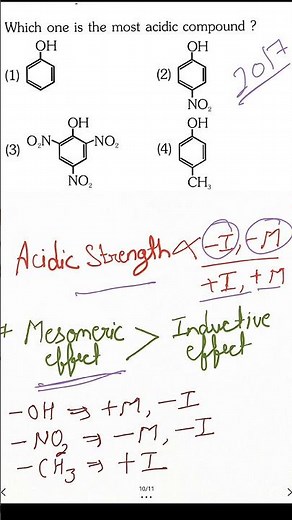 Which one is the most acidic compound ?
OH OH
(1) (2)
NO₂
2017
OH OH
(3) O₂N NO₂ (4)
NO₂ CH₃
Acidic Strength ∝ -I, -M
+I, +M
+ Mesomeric effect > Inductive effect
-OH ⇒ +M, -I
-NO₂ ⇒ -M, -I
-CH₃ ⇒ +I
10/11